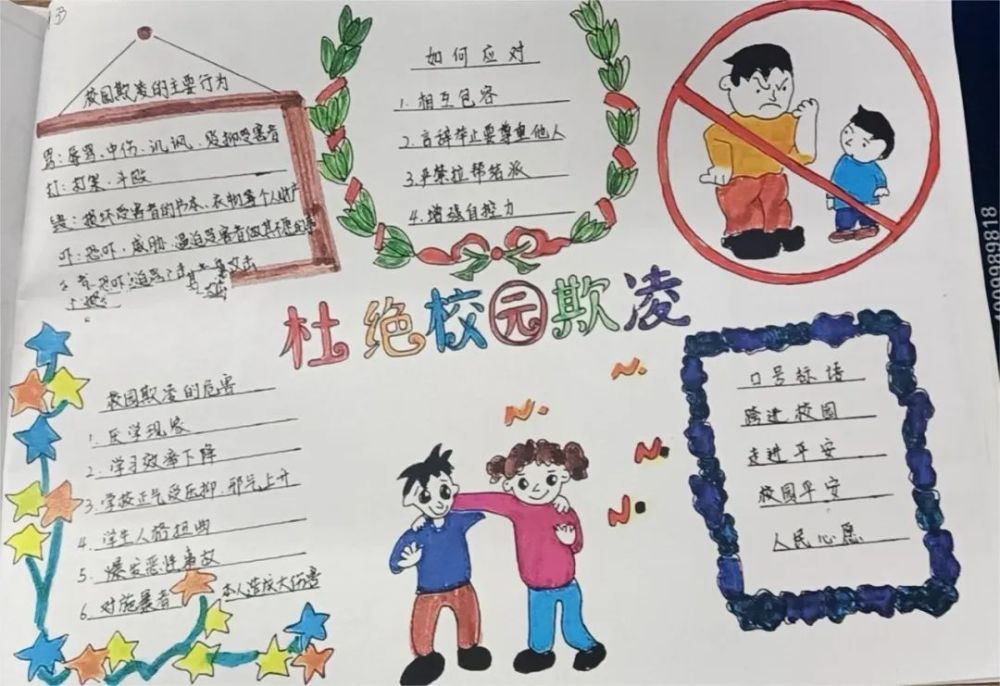 校园欺凌的主要行为
骂:辱骂、中伤、讥讽、贬抑受害者
打:打架、斗殴
毁:损坏受害者的书本、衣物等个人财产
吓:恐吓、威胁、逼迫受害者做其不愿的事
攻击
如何应对
1.相互包容
2.言辞举止要尊重他人
3.严禁拉帮结派
4.增强自控力
杜绝校园欺凌
校园欺凌的危害
1.厌学现象
2.学习效率下降
3.学校正气受压抑、邪气上升
4.学生人格扭曲
5.爆发恶性事故
6.对施暴者 本人造成大伤害
口号标语
跨进校园
走进平安
校园平安
人民心愿
9989818